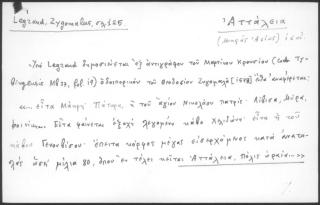 Legrand, Zygomalas, σ. 125
Ἀττάλεια
(Μικρᾶς Ἀσίας)
Ὑπὸ Legrand δημοσιεύεται ἐξ ἀντιγράφου τοῦ Μαρτίνου Κρουσίου (Cod. Tybingensis Mb 37, fol. ) ὁδοιπορικὸν τοῦ Θεοδοσίου Ζυγομαλᾶ ἔνθα ἀναφέρεται:
«... εἶτα Μάκρη· Πάταρα, ἡ τοῦ ἁγίου Νικολάου πατρίς· Λίβισα, Μύρα,
Φοινίκη... Εἶτα φαίνεται ἐξοχὴ λεγομένη κάβο Χελιδόνι· εἶτα ἡ τοῦ
κάβου Γενοβέζου· ἔπειτα κόρφος μέγας εἰσερχόμενος κατὰ ἀνατολὰς ὡσεὶ μίλια 80, ὅπου ἐν τέλει κεῖται Ἀττάλεια, πόλις ὡραία...»